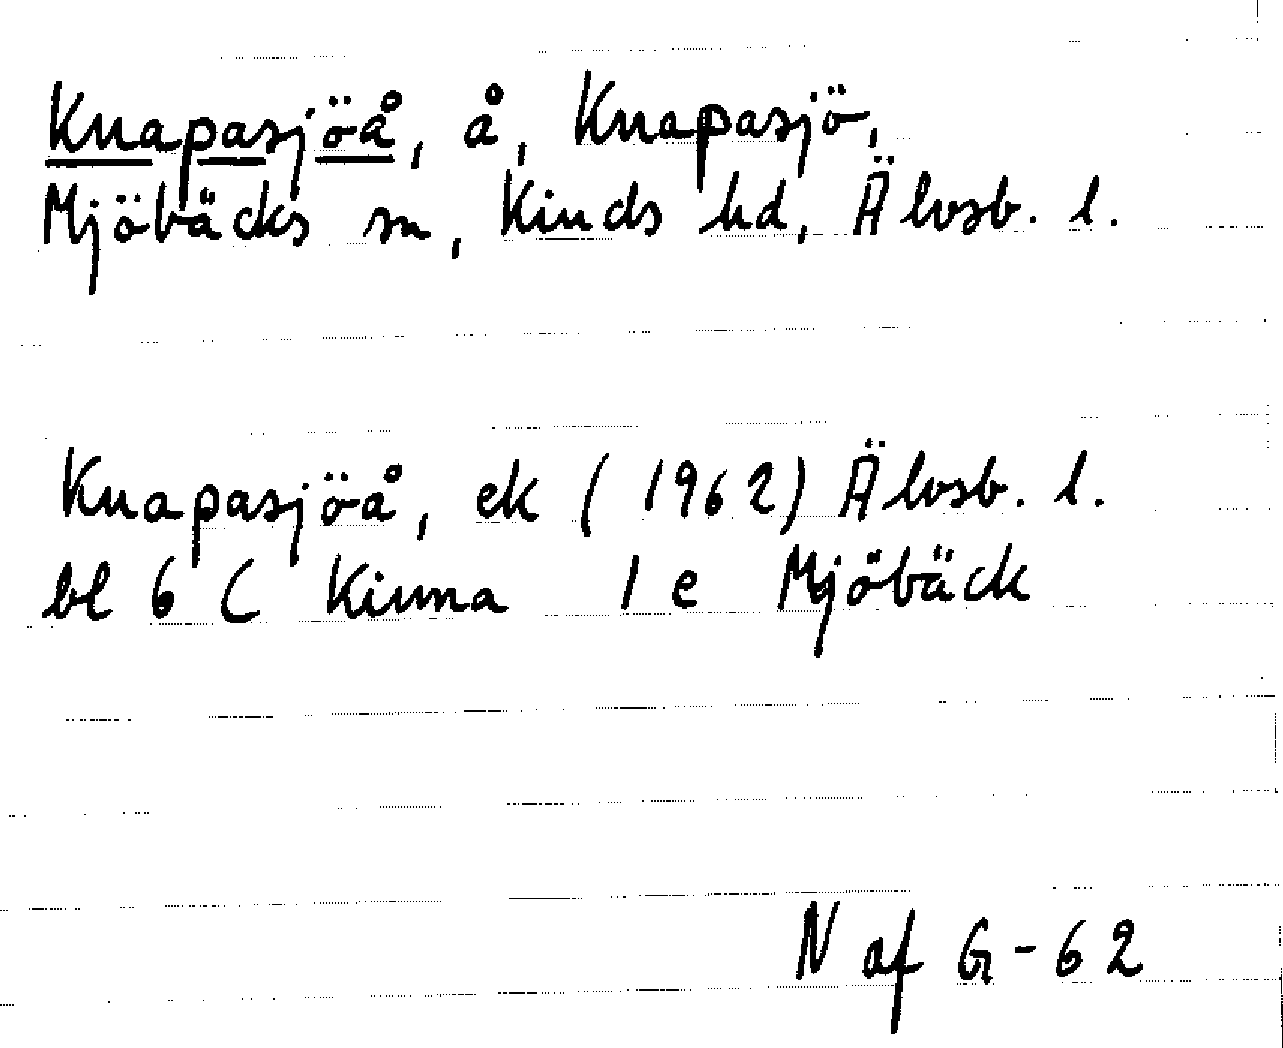 Knapasjöå, å, Knapasjö,
Mjöbäcks sn, Kinds hd, Älvsb. l.
Knapasjöå, ek (1962) Älvsb. l.
bl 6 C Kinna 1 e Mjöbäck
N af G-62